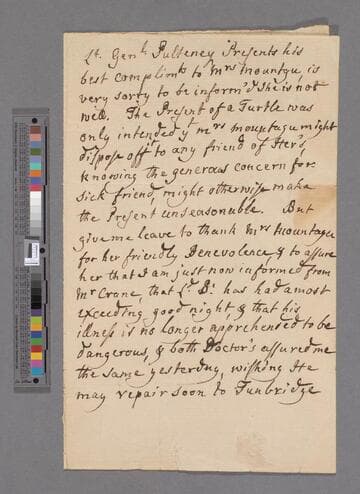 Lt. Genl. Pulteney Presents his
best complimts to Mrs Mountgu, is
very sorry to be inform'd She is not
well. The Present of a Turtle was
only intended yt Mrs Mountagu might
dispose off to any friend of Her's,
knowing the generous concern for
sick friend, might otherwise make
the Present unseasonable. But
give me leave to thank Mrs Mountagu
for her friendly Benevolence & to assure
her that I am just now informed from
Mr Crane, that Ld. B: has had a most
exceeding good night, & that his
illness is no longer apprehended to be
dangerous, & both Doctor's assured me
the same yesterday, wishing He
may repair soon to Tunbridge